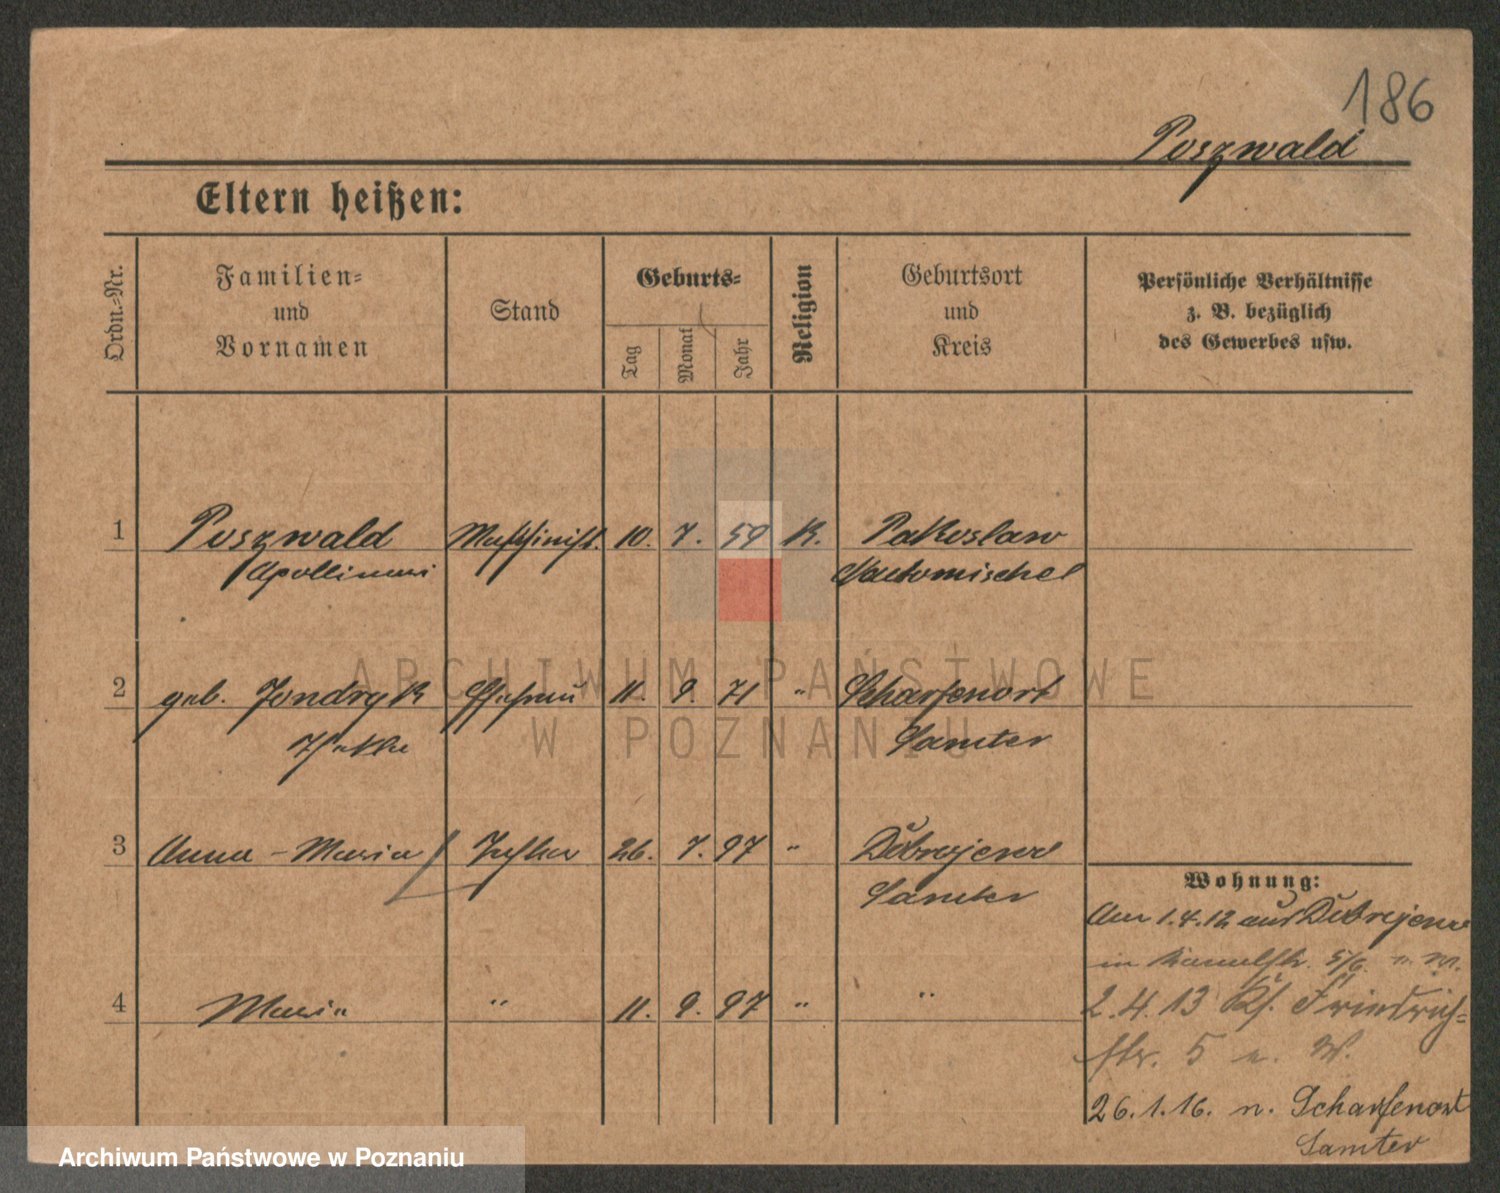 186
Poszwald
Eltern heißen:
Ordn.-Nr.
Familien-
und
Vornamen
Stand
Geburts-
Tag
Monat
Jahr
Religion
Geburtsort
und
Kreis
Persönliche Verhältnisse
z. B. bezüglich
des Gewerbes usw.
1 Poszwald Maschinist. 10. 7. 59 K. Pakoslaw
Apollinari Neutomischel
2 geb. Jondryk Ehefrau 11. 9. 71 " Scharfenort
Samter
3 Anna - Maria Tochter 26. 7. 97 "
Samter
Wohnung:
Am 1.4.12 aus
in 5/6
4 Maria " 11. 9. 97 " "
2.4.13 Friedrich-
str. 5 W.
26.1.16. n. Scharfenort
Samter
ARCHIWUM PAŃSTWOWE
W POZNANIU
Archiwum Państwowe w Poznaniu